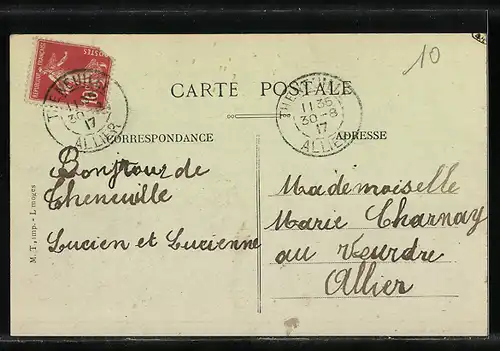 10
CARTE POSTALE
THENEUILLE
11 35
30-8
17
ALLIER
THENEUILLE
11 35
30-8
17
ALLIER
POSTES
10
CORRESPONDANCE
ADRESSE
Bonjour de
Theneuille
Lucien et Lucienne
Mademoiselle
Marie Charnay
au Veurdre
Allier
M. T., imp. - Limoges